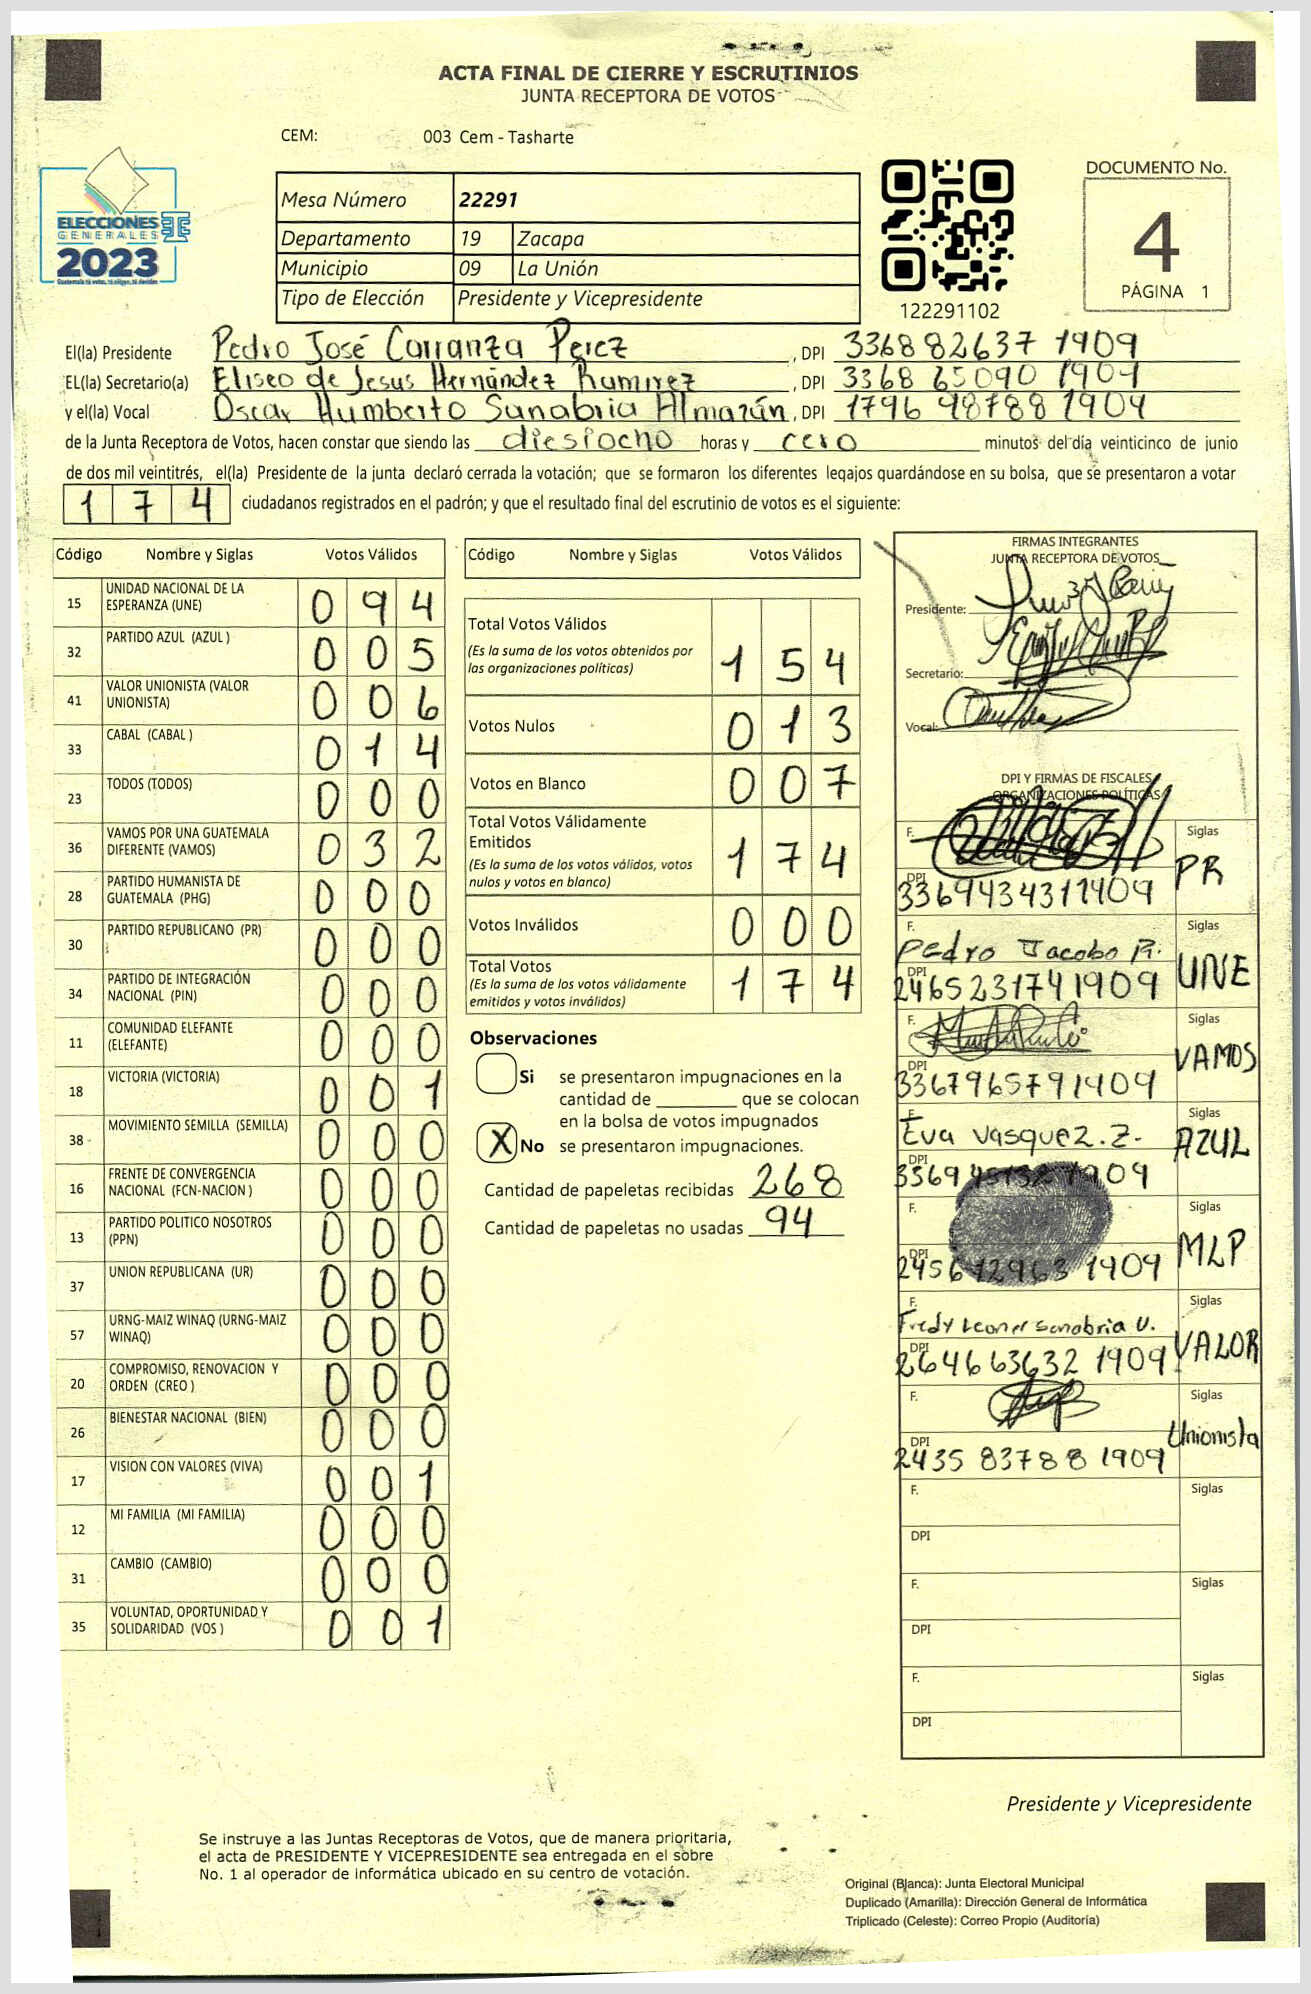 ACTA FINAL DE CIERRE Y ESCRUTINIOS
JUNTA RECEPTORA DE VOTOS
CEM: 003 Cem - Tasharte
ELECCIONES
GENERALES
2023
Mesa Número 22291
Departamento 19 Zacapa
Municipio 09 La Unión
Tipo de Elección Presidente y Vicepresidente
122291102
DOCUMENTO No.
4
PÁGINA 1
El(la) Presidente Pedro José Carranza Perez, DPI 336882637 1909
EL(la) Secretario(a) Eliseo de Jesus Hernández Ramirez, DPI 3368 65090 1909
y el(la) Vocal Oscar Humberto Sanabria Almazán, DPI 1796 98788 1909
de la Junta Receptora de Votos, hacen constar que siendo las diesiocho horas y cero minutos del día veinticinco de junio
de dos mil veintitrés, el(la) Presidente de la junta declaró cerrada la votación; que se formaron los diferentes legajos guardándose en su bolsa, que se presentaron a votar
174 ciudadanos registrados en el padrón; y que el resultado final del escrutinio de votos es el siguiente:
Código Nombre y Siglas Votos Válidos
15 UNIDAD NACIONAL DE LA ESPERANZA (UNE) 094
32 PARTIDO AZUL (AZUL ) 005
41 VALOR UNIONISTA (VALOR UNIONISTA) 006
33 CABAL (CABAL ) 014
23 TODOS (TODOS) 000
36 VAMOS POR UNA GUATEMALA DIFERENTE (VAMOS) 032
28 PARTIDO HUMANISTA DE GUATEMALA (PHG) 000
30 PARTIDO REPUBLICANO (PR) 000
34 PARTIDO DE INTEGRACIÓN NACIONAL (PIN) 000
11 COMUNIDAD ELEFANTE (ELEFANTE) 000
18 VICTORIA (VICTORIA) 001
38 MOVIMIENTO SEMILLA (SEMILLA) 000
16 FRENTE DE CONVERGENCIA NACIONAL (FCN-NACION ) 000
13 PARTIDO POLITICO NOSOTROS (PPN) 000
37 UNION REPUBLICANA (UR) 000
57 URNG-MAIZ WINAQ (URNG-MAIZ WINAQ) 000
20 COMPROMISO, RENOVACION Y ORDEN (CREO ) 000
26 BIENESTAR NACIONAL (BIEN) 000
17 VISION CON VALORES (VIVA) 001
12 MI FAMILIA (MI FAMILIA) 000
31 CAMBIO (CAMBIO) 000
35 VOLUNTAD, OPORTUNIDAD Y SOLIDARIDAD (VOS ) 001
Código Nombre y Siglas Votos Válidos
Total Votos Válidos
(Es la suma de los votos obtenidos por
las organizaciones políticas) 154
Votos Nulos 013
Votos en Blanco 007
Total Votos Válidamente
Emitidos
(Es la suma de los votos válidos, votos
nulos y votos en blanco) 174
Votos Inválidos 000
Total Votos
(Es la suma de los votos válidamente
emitidos y votos inválidos) 174
Observaciones
Si se presentaron impugnaciones en la
cantidad de ________ que se colocan
en la bolsa de votos impugnados
X No se presentaron impugnaciones.
Cantidad de papeletas recibidas 268
Cantidad de papeletas no usadas 94
FIRMAS INTEGRANTES
JUNTA RECEPTORA DE VOTOS
Presidente:
Secretario:
Vocal:
DPI Y FIRMAS DE FISCALES
ORGANIZACIONES POLÍTICAS
F. Siglas PR
DPI 3369434311909
F. Pedro Jacobo R. Siglas UNE
DPI 2465231741909
F. Siglas VAMOS
DPI 3367965791909
F. Eva Vasquez. Z. Siglas AZUL
DPI
F. Siglas MLP
DPI
F. Fredy Leonel Sanabria V. Siglas VALOR
DPI 264663632 1909
F. Siglas Unionista
DPI 2435 83788 1909
F. Siglas
DPI
F. Siglas
DPI
F. Siglas
DPI
Presidente y Vicepresidente
Se instruye a las Juntas Receptoras de Votos, que de manera prioritaria,
el acta de PRESIDENTE Y VICEPRESIDENTE sea entregada en el sobre
No. 1 al operador de informática ubicado en su centro de votación.
Original (Blanca): Junta Electoral Municipal
Duplicado (Amarilla): Dirección General de Informática
Triplicado (Celeste): Correo Propio (Auditoría)